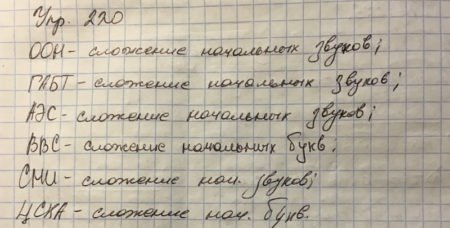 Упр. 220
ООН - сложение начальных звуков;
ГАБТ - сложение начальных звуков;
АЭС - сложение начальных звуков;
ВВС - сложение начальных букв;
СМИ - сложение нач. звуков;
ЦСКА - сложение нач. букв.